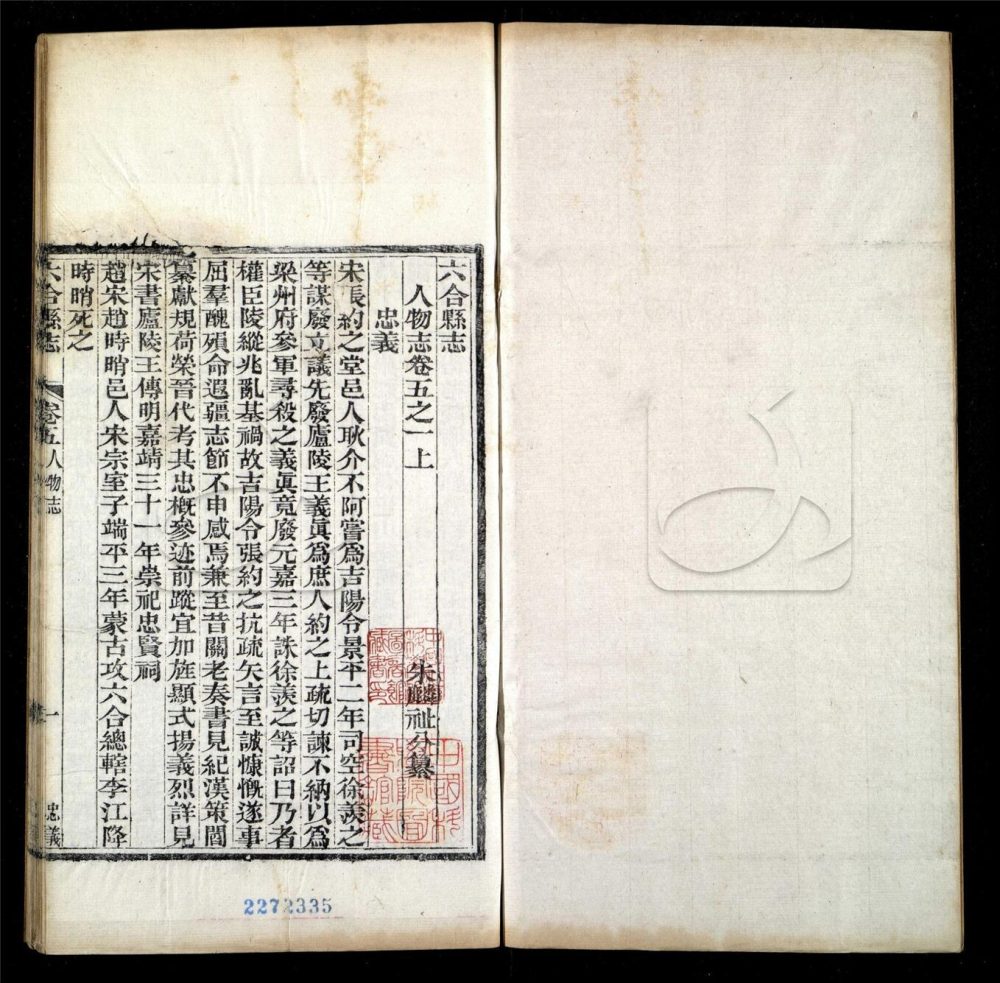 六合縣志
人物志卷五之一上
朱麟祉分纂
忠義
宋張約之堂邑人耿介不阿嘗爲吉陽令景平二年司空徐羨之
等謀廢立議先廢廬陵王義眞爲庶人約之上疏切諫不納以爲
梁州府參軍尋殺之義眞竟廢元嘉三年誅徐羨之等詔曰乃者
權臣陵縱兆亂基禍故吉陽令張約之抗疏矢言至誠慷慨遂事
屈羣醜殞命遐疆志節不申感焉兼至昔關老奏書見紀漢策閻
纂獻規荷榮晉代考其忠概參迹前蹤宜加旌顯式揚義烈詳見
宋書廬陵王傳明嘉靖三十一年崇祀忠賢祠
趙宋趙時哨邑人宋宗室子端平三年蒙古攻六合總轄李江降
時哨死之
六合縣志
卷五人物志
一
忠義
2272335